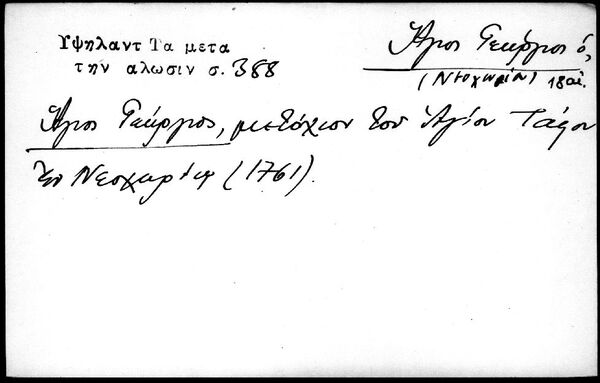 Υψηλαντ Τα μετα
την αλωσιν σ. 388
Άγιος Γεώργιος ὁ,
(Νεοχωρίου) 18 αἰ.
Άγιος Γεώργιος, μετόχιον τοῦ Ἁγίου Τάφου
ἐν Νεοχωρίῳ (1761).